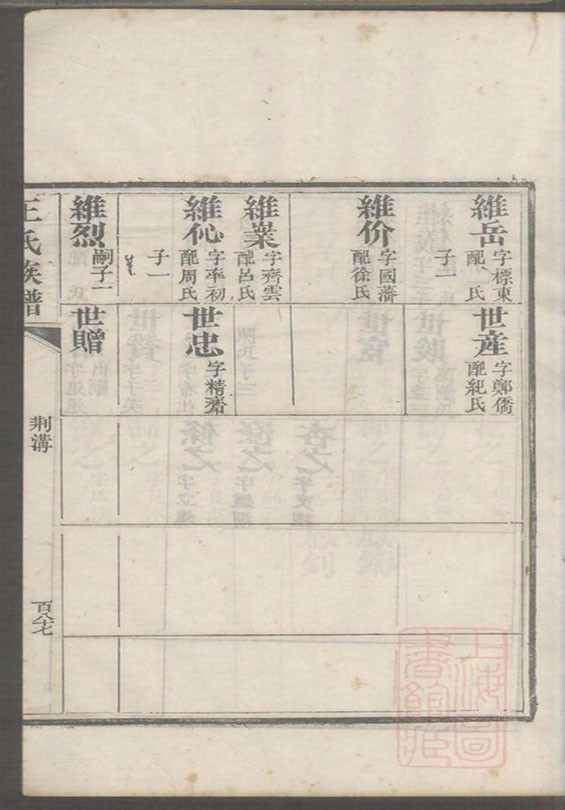 維岳
字標東
配 氏
子一
維价
字國藩
配徐氏
維業
字齊雲
配呂氏
維伈
字率初
配周氏
子一
維烈
嗣子一
世產
字鄭僑
配紀氏
世忠
字精齋
世贈
王氏族譜
荆溝
百八十七
上海圖書館藏